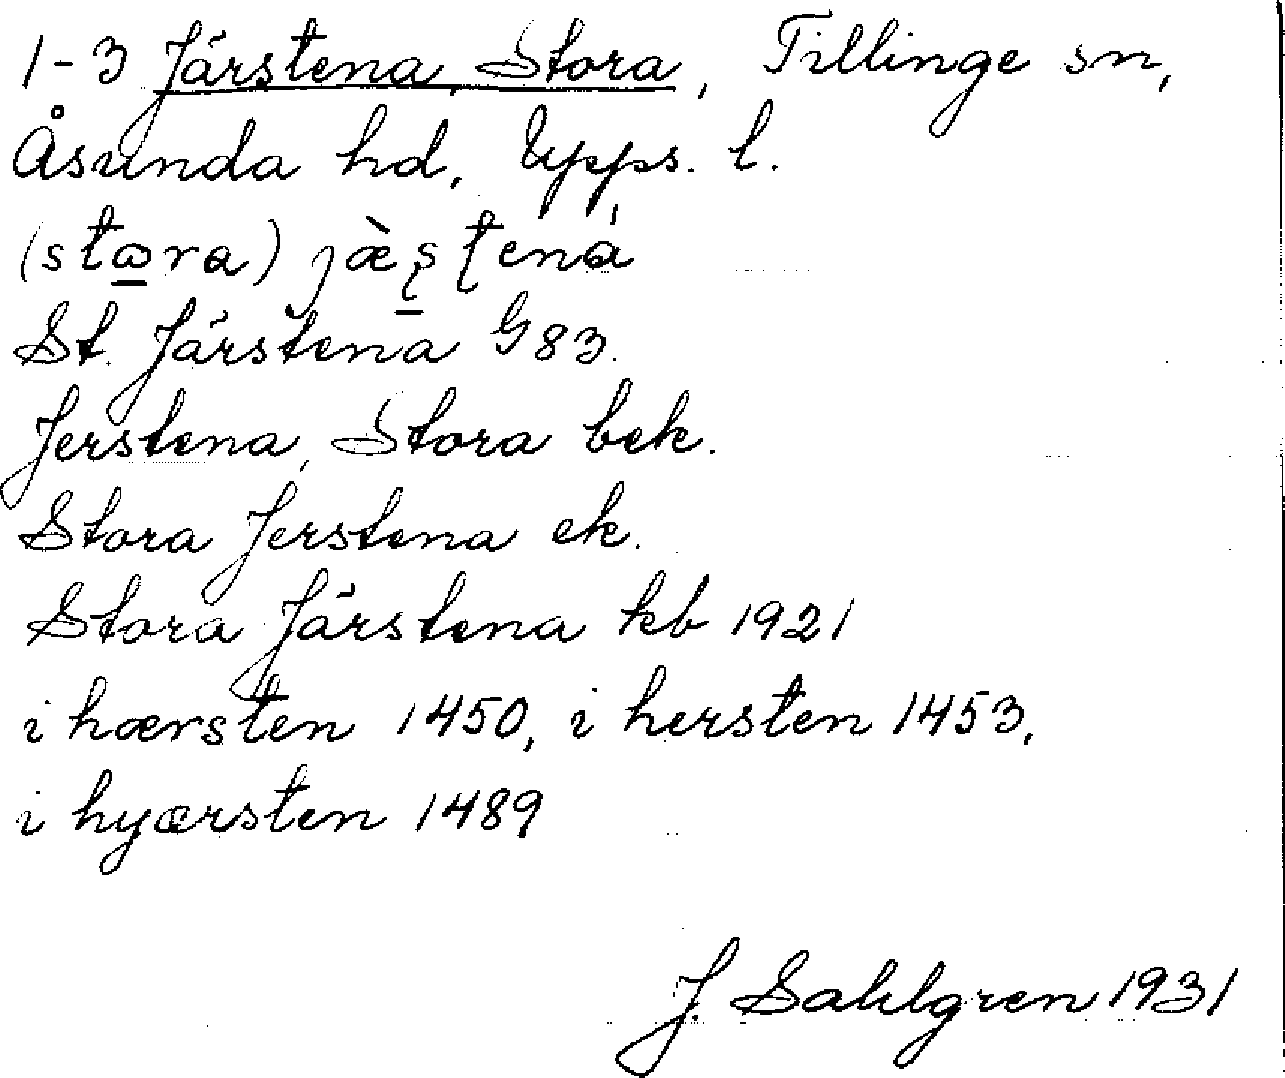 1-3 Järstena, Stora, Tillinge sn,
Åsunda hd, Upps. l.
(stɷra) jæ̀ʂʈená
St. Järstena G 83.
Jerstena, Stora bek.
Stora Jerstena ek.
Stora Järstena kb 1921
i hærsten 1450, i hersten 1453,
i hyærsten 1489
J. Sahlgren 1931